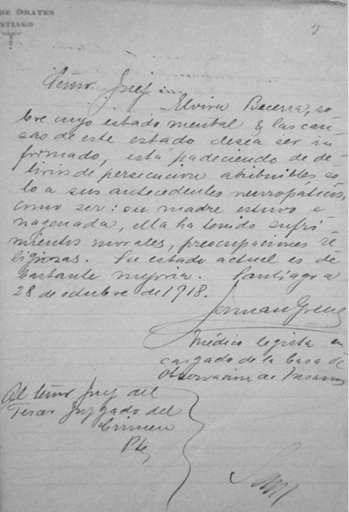 DE ORATES
SANTIAGO
Señor Juez:
Elvira Becerra, so
bre cuyo estado mental & las cau
sas de este estado desea ser in
formado, está padeciendo de de
lirio de persecucion atribuibles so
lo a sus antecedentes neuropáticos,
como ser: su madre estuvo e
nagenada, ella ha tenido sufri
mientos morales, preocupaciones re
ligiosas. Su estado actual es de
bastante mejoria. Santiago a
28 de octubre de 1918.
German Greve
Médico legista en
cargado de la Casa de
Observacion de Insanos
Al señor Juez del
Tercer Juzgado del
Crimen
Pte